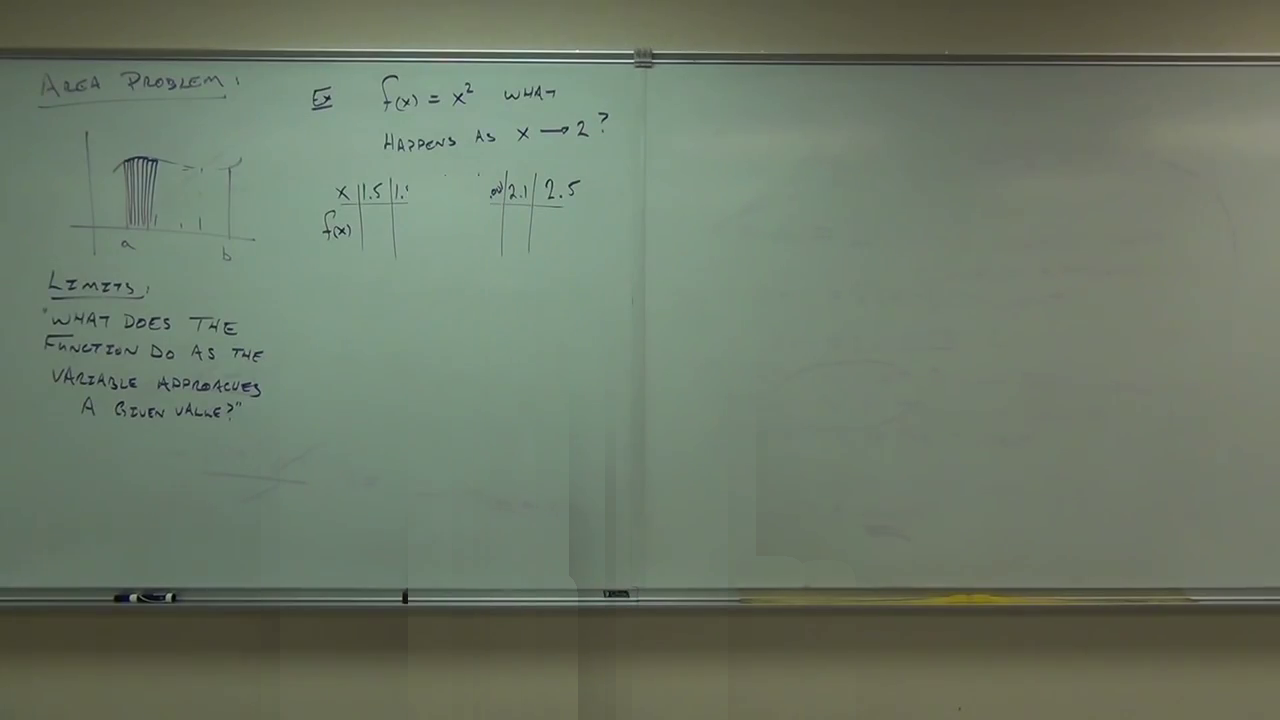 AREA PROBLEM:
a
b
LIMITS:
"WHAT DOES THE
FUNCTION DO AS THE
VARIABLE APPROACHES
A GIVEN VALUE?"
Ex f(x) = x² WHAT
HAPPENS AS X → 2?
X 1.5 2.1 2.5
f(x)